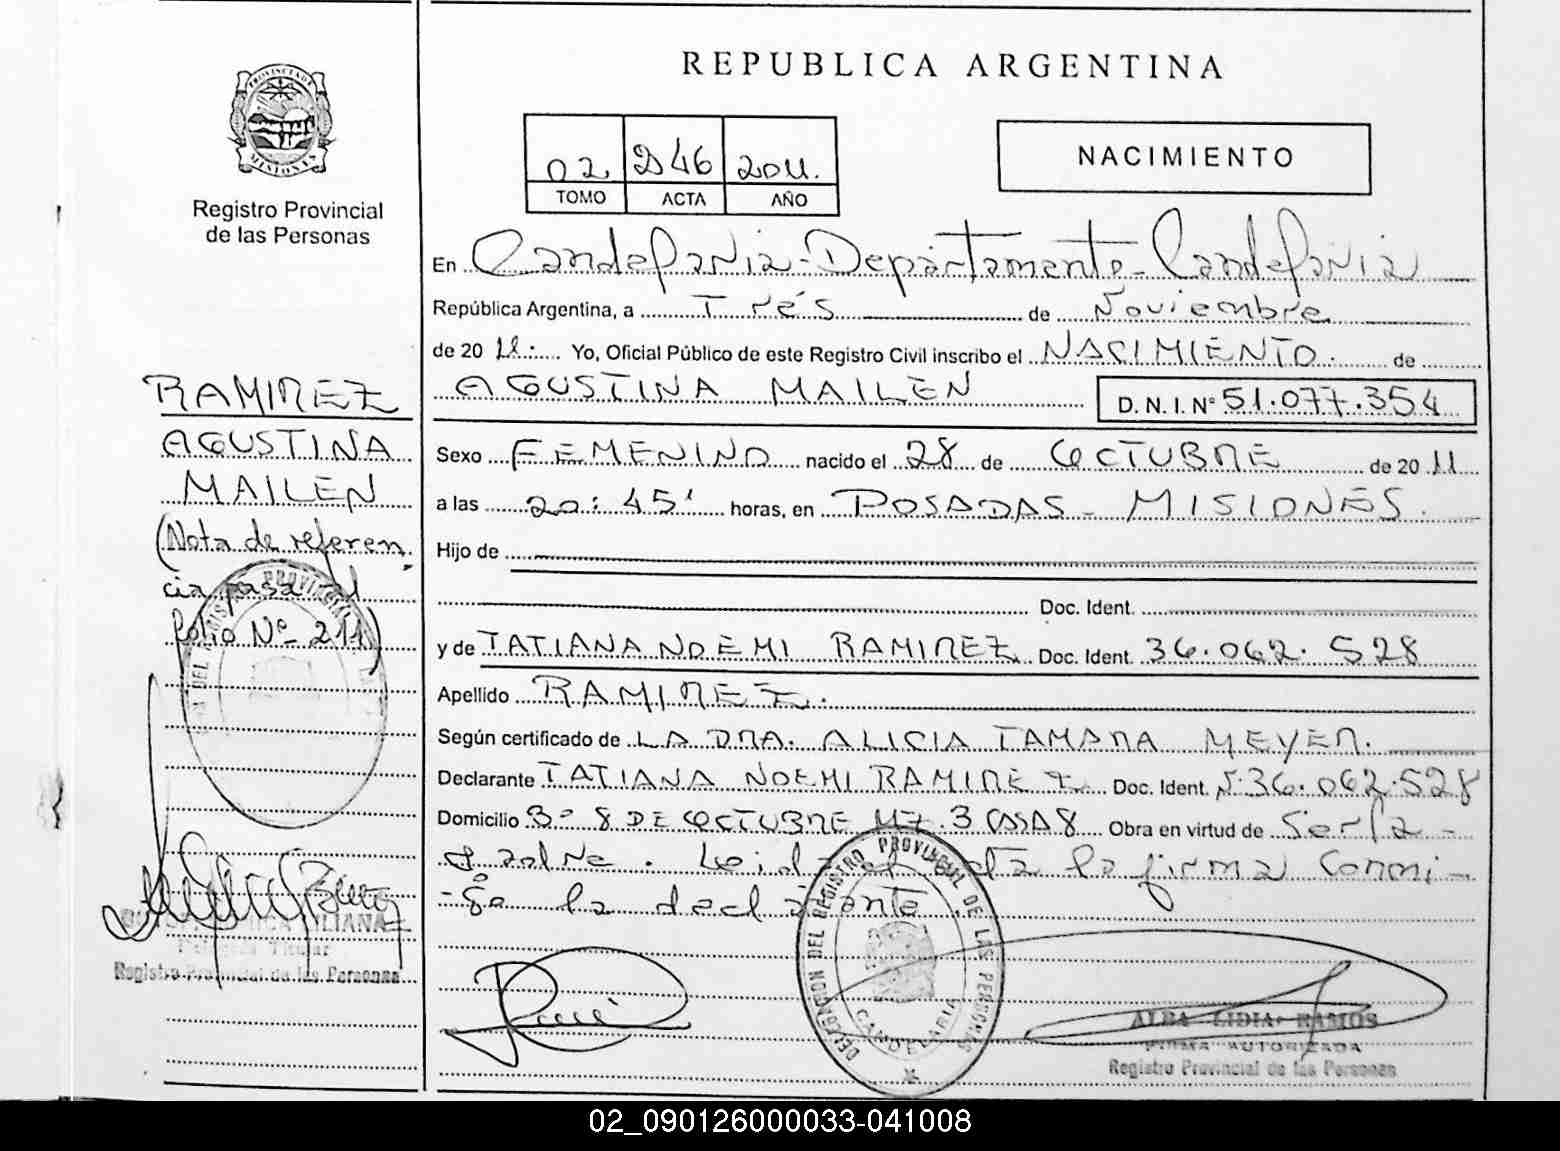 PROVINCIA DE
MISIONES
Registro Provincial
de las Personas
RAMIREZ
AGUSTINA
MAILEN
(Nota de referen-
cia pasa al
folio Nº 211)
LILIANA
Delegada Titular
Registro Provincial de las Personas
REPUBLICA ARGENTINA
02 246 2011.
TOMO ACTA AÑO
NACIMIENTO
En Candelaria-Departamento-Candelaria
República Argentina, a Tres de Noviembre
de 20 11. Yo, Oficial Público de este Registro Civil inscribo el NACIMIENTO. de
AGUSTINA MAILEN D.N.I. Nº 51.077.354
Sexo FEMENINO nacido el 28 de OCTUBRE de 20 11
a las 20:45' horas, en POSADAS - MISIONES.
Hijo de
Doc. Ident.
y de TATIANA NOEMI RAMIREZ Doc. Ident. 36.062.528
Apellido RAMIREZ.
Según certificado de LA DRA. ALICIA TAMARA MEYER.
Declarante TATIANA NOEMI RAMIREZ Doc. Ident. 36.062.528
Domicilio Bº 8 DE OCTUBRE MZ 3 CASA 8 Obra en virtud de Ser la
madre. Leida el acta la firma conmi-
-go la declarante.
DELEGACION DEL REGISTRO PROVINCIAL DE LAS PERSONAS
CANDELARIA
ALBA LIDIA RAMOS
FIRMA AUTORIZADA
Registro Provincial de las Personas
02_090126000033-041008